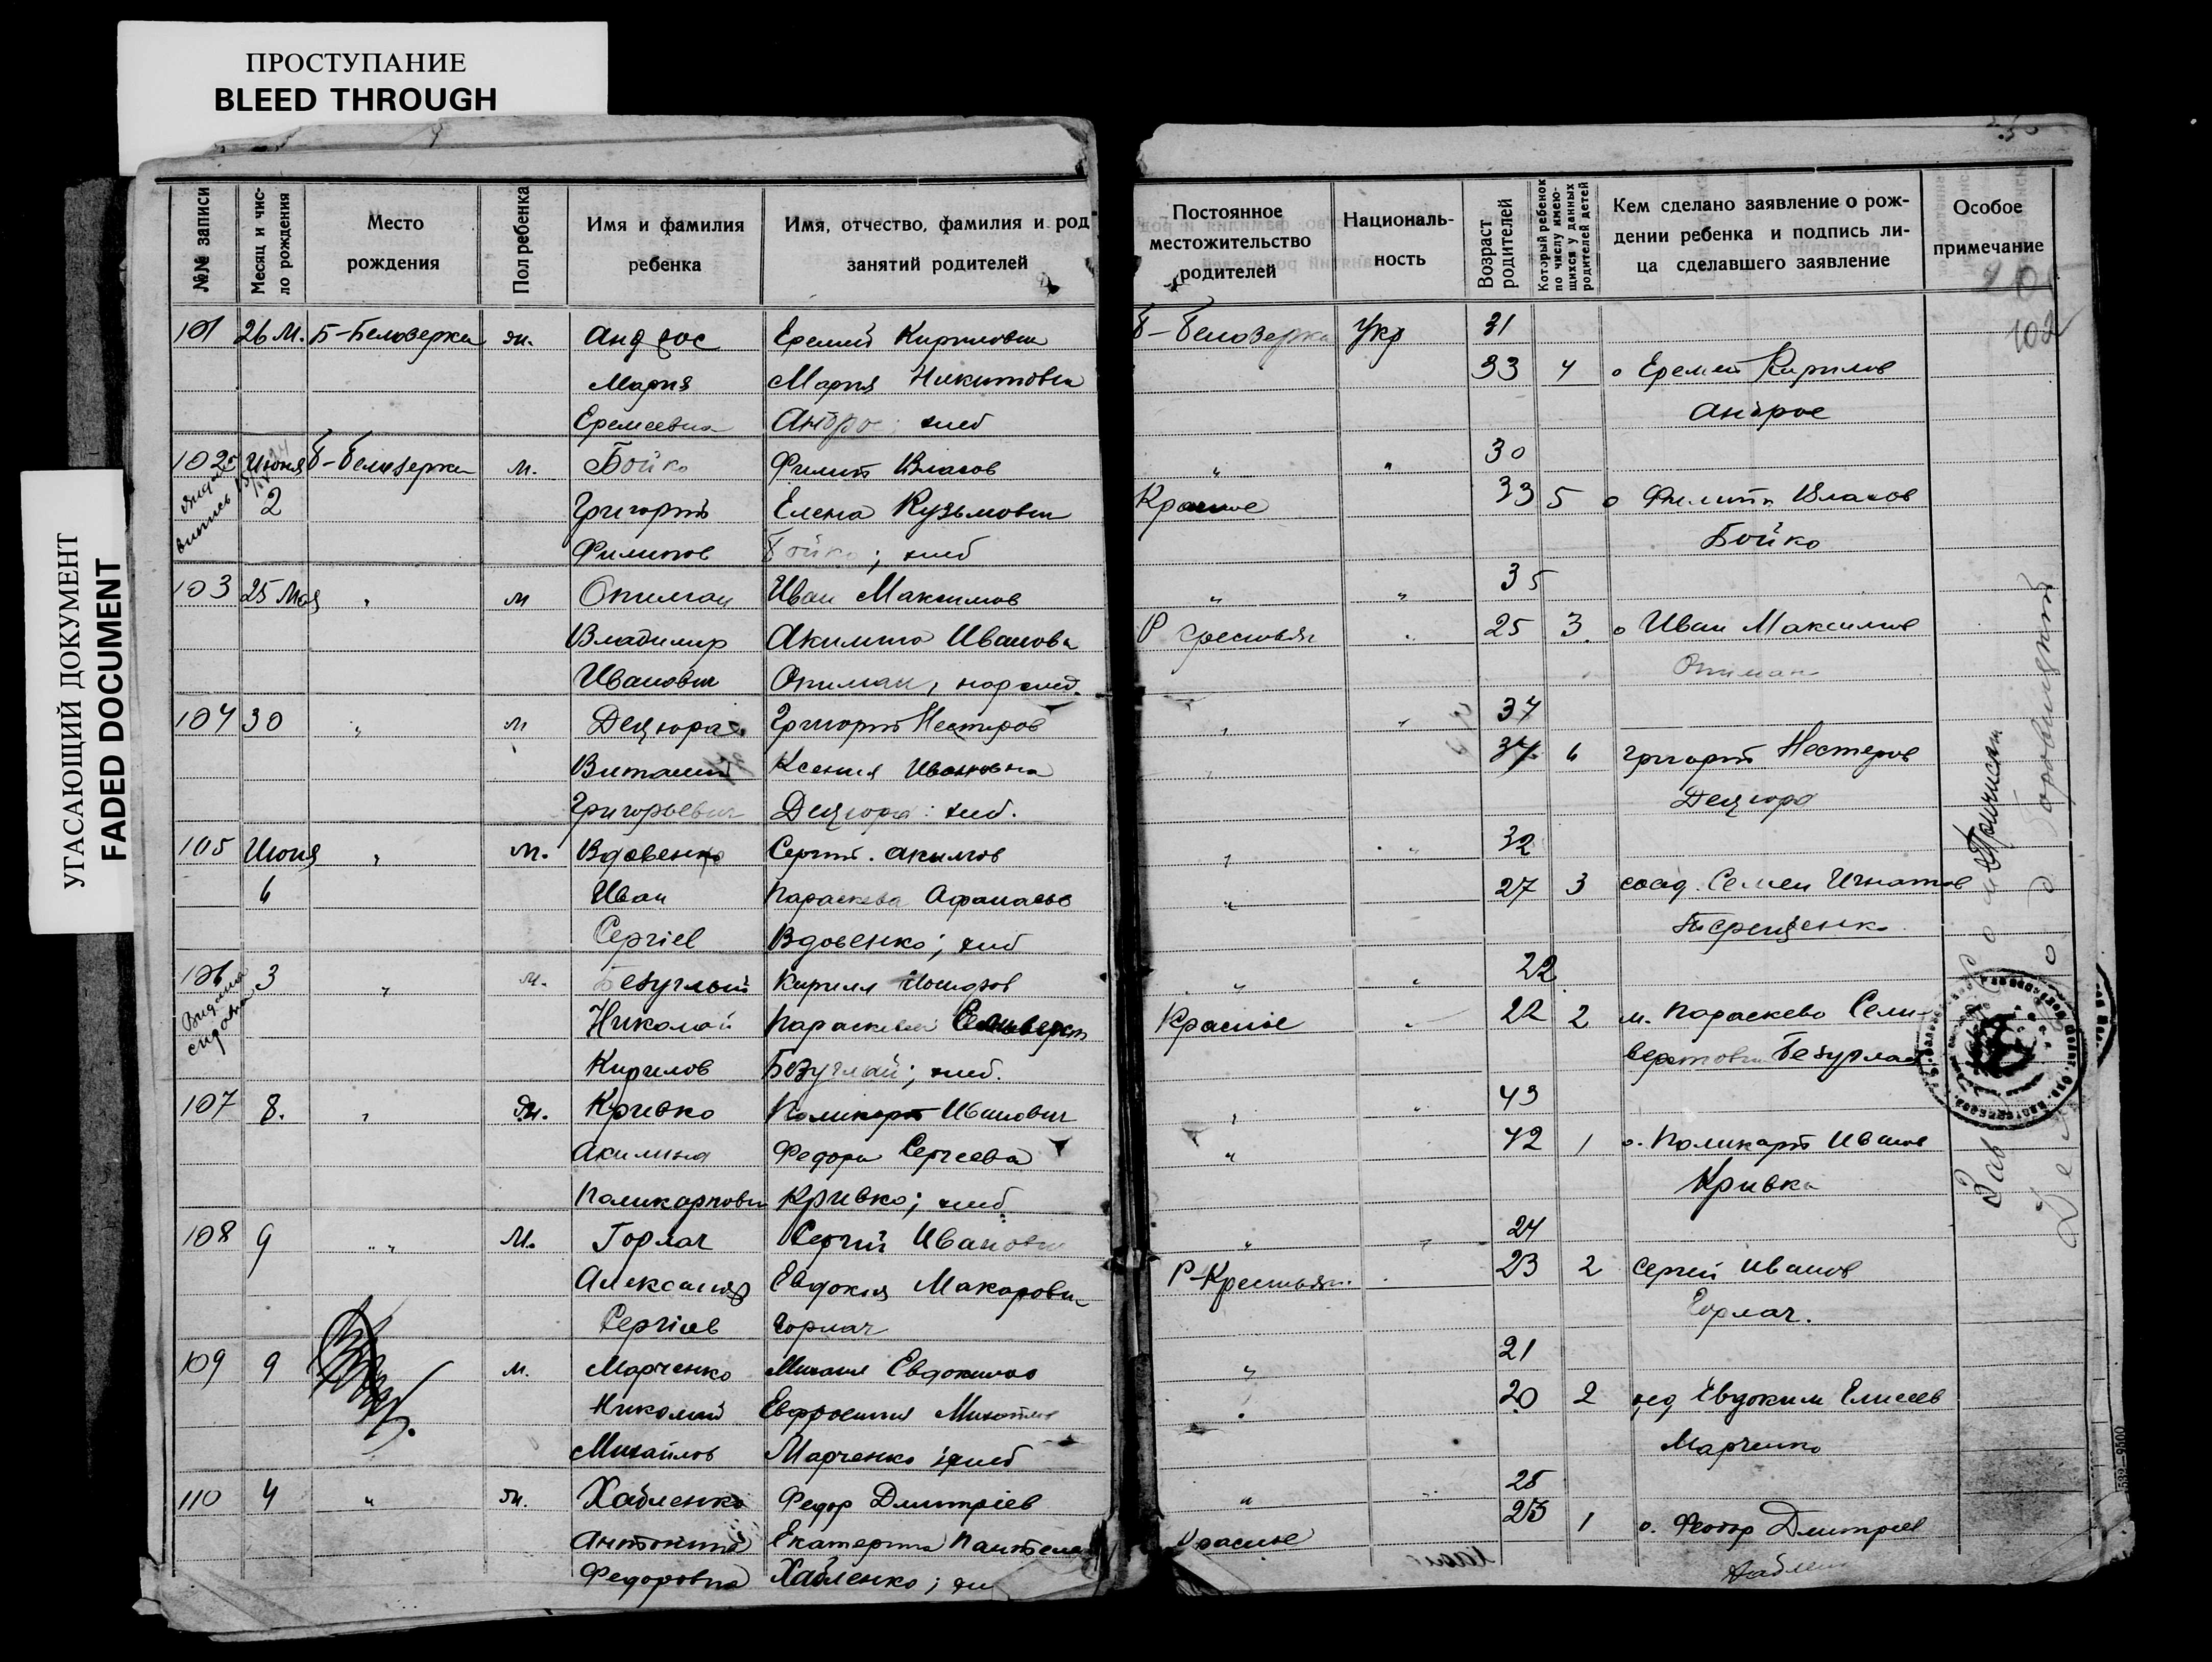 ПРОСТУПАНИЕ
BLEED THROUGH
УГАСАЮЩИЙ ДОКУМЕНТ
FADED DOCUMENT
№№ записи
Месяц и чис-
ло рождения
Место
рождения
Пол ребенка
Имя и фамилия
ребенка
Имя, отчество, фамилия и род
занятий родителей
Постоянное
местожительство
родителей
Националь-
ность
Возраст
родителей
Который ребенок
по числу имею-
щихся у данных
родителей детей
Кем сделано заявление о рож-
дении ребенка и подпись ли-
ца сделавшего заявление
Особое
примечание
102
101 26 М. Б-Белозерка Андрос Еремей Кирилович Б-Белозерка Укр 31
Мария Мария Никитовна 33 4 о Еремей Кирилов
Еремеевна Андрос; хлеб Андрос
102 Июня Б-Белозерка м. Бойко Филип Власов " " 30
2 Григорий Елена Кузьмовна Красное 33 5 о Филипп Власов
Филипов Бойко; хлеб Бойко
103 25 Мая " м Опиман Иван Максимов " " 35
Владимир Акилина Иванова Р Крестьян " 25 3. о Иван Максимов
Иванович Опиман, Опиман
104 30 " м Децюра Григорий Нестеров " " 37
Виталий Ксения Ивановна " 37 6 Григорий Нестеров
Григорьевич Децюра: хлеб. Децюра
105 Июня " м. Вдовенко Сергий Акимов " " 32
6 Иван Параскева Афанасьев " 27 3 сосед. Семен Игнатов
Сергіев Вдовенко; хлеб Терещенко
106 3 " м. Безуглый Кирилл " " 22
Видана Николай Параскева Красное " 22 2 м. Параскева Сели-
Кирилов Безуглый; хлеб. верстовна Безуглая
107 8. " Кривко Поликарп Иванович " " 43
Акилина Федора Сергеева " 42 1 о. Поликарп Иванов
Поликарповна Кривко; хлеб Кривко
108 9 " " М. Горлач Сергий Иванович " " 24
Александр Евдокия Макаровна Р-Крестьян. 23 2 Сергей Иванов
Сергіев Горлач Горлач.
109 9 м. Марченко Михаил Евдокимов " 21
Николай Евфросиния 20 2 дед Евдоким Елисеев
Михайлов Марченко; хлеб Марченко
110 4 " Хабленко Федор Дмитріев " "
Антонина Екатерина Пантелей Красное 1 о. Феодор Дмитріев
Федоровна Хабленко;